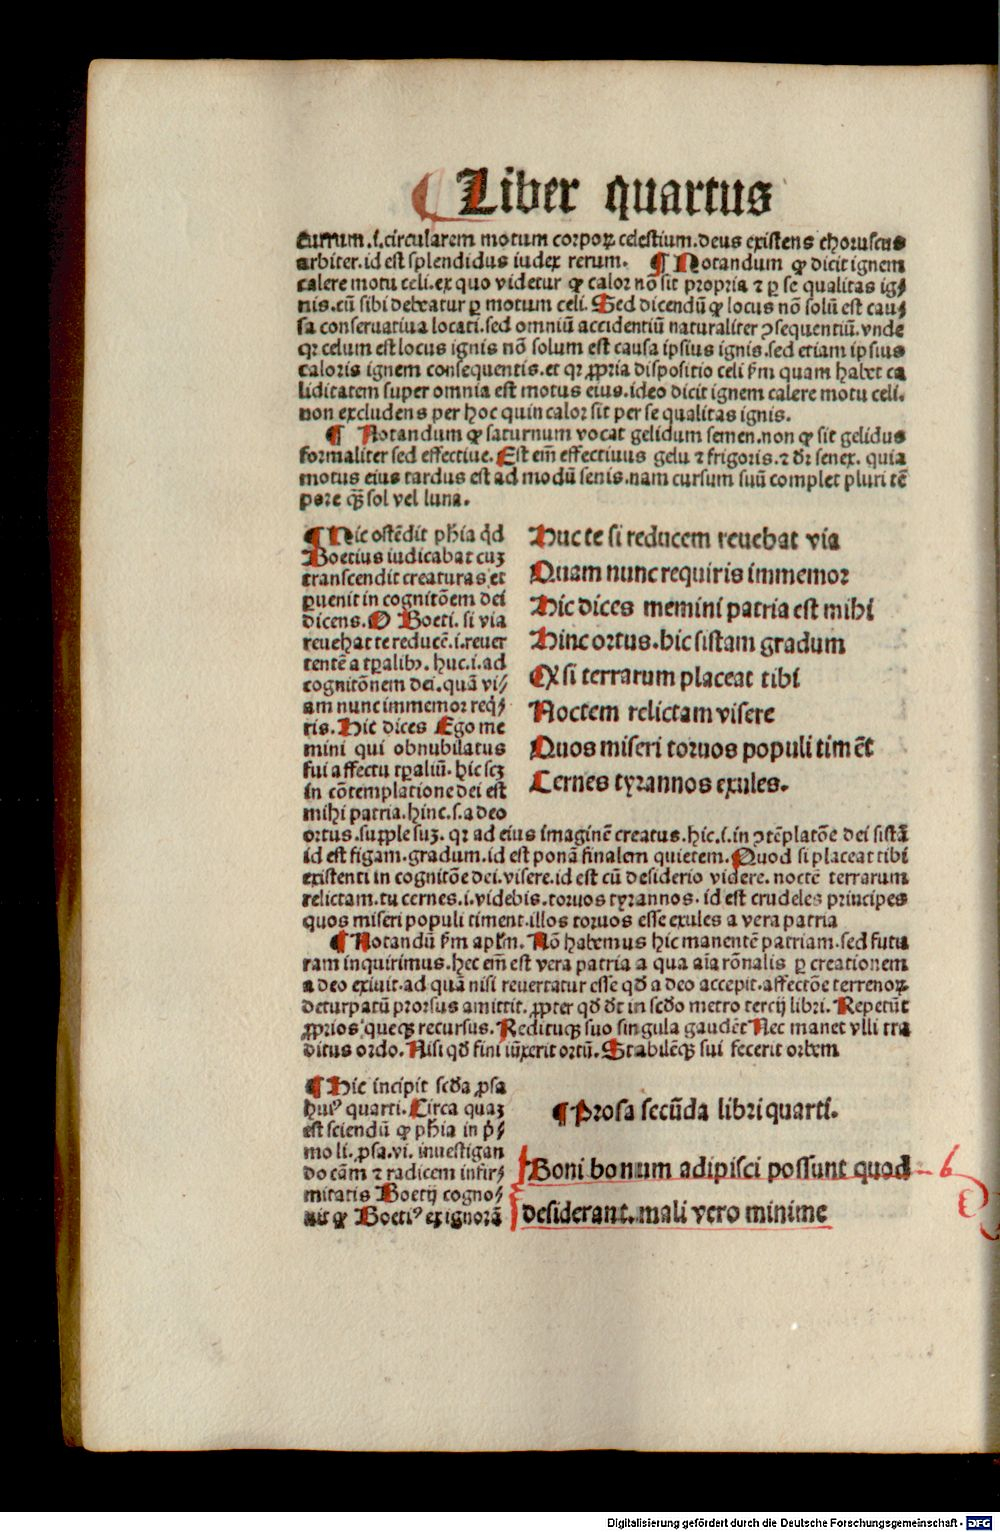 ¶ Liber quartus
currum .i. circularem motum corpoꝝ celestium. deus existens choruscus
arbiter. id est splendidus iudex rerum. ¶ Notandum ꝙ dicit ignem
calere motu celi. ex quo videtur ꝙ calor nō sit propria ⁊ ꝑ se qualitas ig⸗
nis. cū sibi debeatur ꝑ motum celi. Sed dicendū ꝙ locus nō solū est cau⸗
sa conseruatiua locati. sed omniū accidentiū naturaliter ꝯsequentiū. vnde
qꝛ celum est locus ignis nō solum est causa ipsius ignis. sed etiam ipsius
caloris ignem consequentis. et qꝛ ꝓpria dispositio celi ẜm quam habet ca
liditatem super omnia est motus eius. ideo dicit ignem calere motu celi.
non excludens per hoc quin calor sit per se qualitas ignis.
¶ Notandum ꝙ saturnum vocat gelidum semen. non ꝙ sit gelidus
formaliter sed effectiue. Est em̄ effectiuus gelu ⁊ frigoris. ⁊ dr̄ senex. quia
motus eius tardus est ad modū senis. nam cursum suū complet pluri tē
pore ꝙ̄ sol vel luna.
¶ Hic ostēdit phīa qd̄
Boetius iudicabat cuꝫ
transcendit creaturas et
ꝑuenit in cognitōem dei
dicens. O Boeti. si via
reuehat te reducē. i. reuer
tentē a tꝑalibꝰ. huc. i. ad
cognitōnem dei. quā vi⸗
am nunc immemor reqͥ⸗
ris. Hic dices Ego me
mini qui obnubilatus
fui affectu tꝑaliū. hic scꝫ
in cōtemplatione dei est
mihi patria. hinc. s. a deo
ortus. supple suꝫ. qꝛ ad eius imaginē creatus. hic. i. in ꝯtēplatōe dei sistā
id est figam. gradum. id est ponā finalem quietem. Quod si placeat tibi
existenti in cognitōe dei. visere. id est cū desiderio videre. noctē terrarum
relictam. tu cernes. i. videbis. toruos tyrannos. id est crudeles principes
quos miseri populi timent. illos toruos esse exules a vera patria
¶ Notandū ẜm apl̄m. Nō habemus hic manentē patriam. sed futu
ram inquirimus. hec em̄ est vera patria a qua aīa rōnalis ꝑ creationem
a deo exiuit. ad quā nisi reuertatur esse qd̄ a deo accepit. affectōe terrenoꝝ
deturpatū prorsus amittit. ꝓpter qd̄ dr̄ in scd̄o metro tercij libri. Repetūt
ꝓprios queqꝫ recursus. Redituqꝫ suo singula gaudēt Nec manet vlli tra
ditus ordo. Nisi qd̄ fini iūxerit ortū. Stabilēqꝫ sui fecerit orbem
Huc te si reducem reuehat via
Quam nunc requiris immemor
Hic dices memini patria est mihi
Hinc ortus. hic sistam gradum
Qꝫ si terrarum placeat tibi
Noctem relictam visere
Quos miseri toruos populi timēt
Cernes tyrannos exules.
¶ Hic incipit scd̄a ꝓsa
huiꝰ quarti. Circa quaꝫ
est sciendū ꝙ phīa in pͥ⸗
mo li. ꝓsa. vi. inuestigan
do cām ⁊ radicem infir⸗
mitatis Boetij cogno⸗
uit ꝙ Boetiꝰ ex ignorā
¶ Prosa secūda libri quarti.
Boni bonum adipisci possunt quod
desiderant. mali vero minime
Digitalisierung gefördert durch die Deutsche Forschungsgemeinschaft - DFG